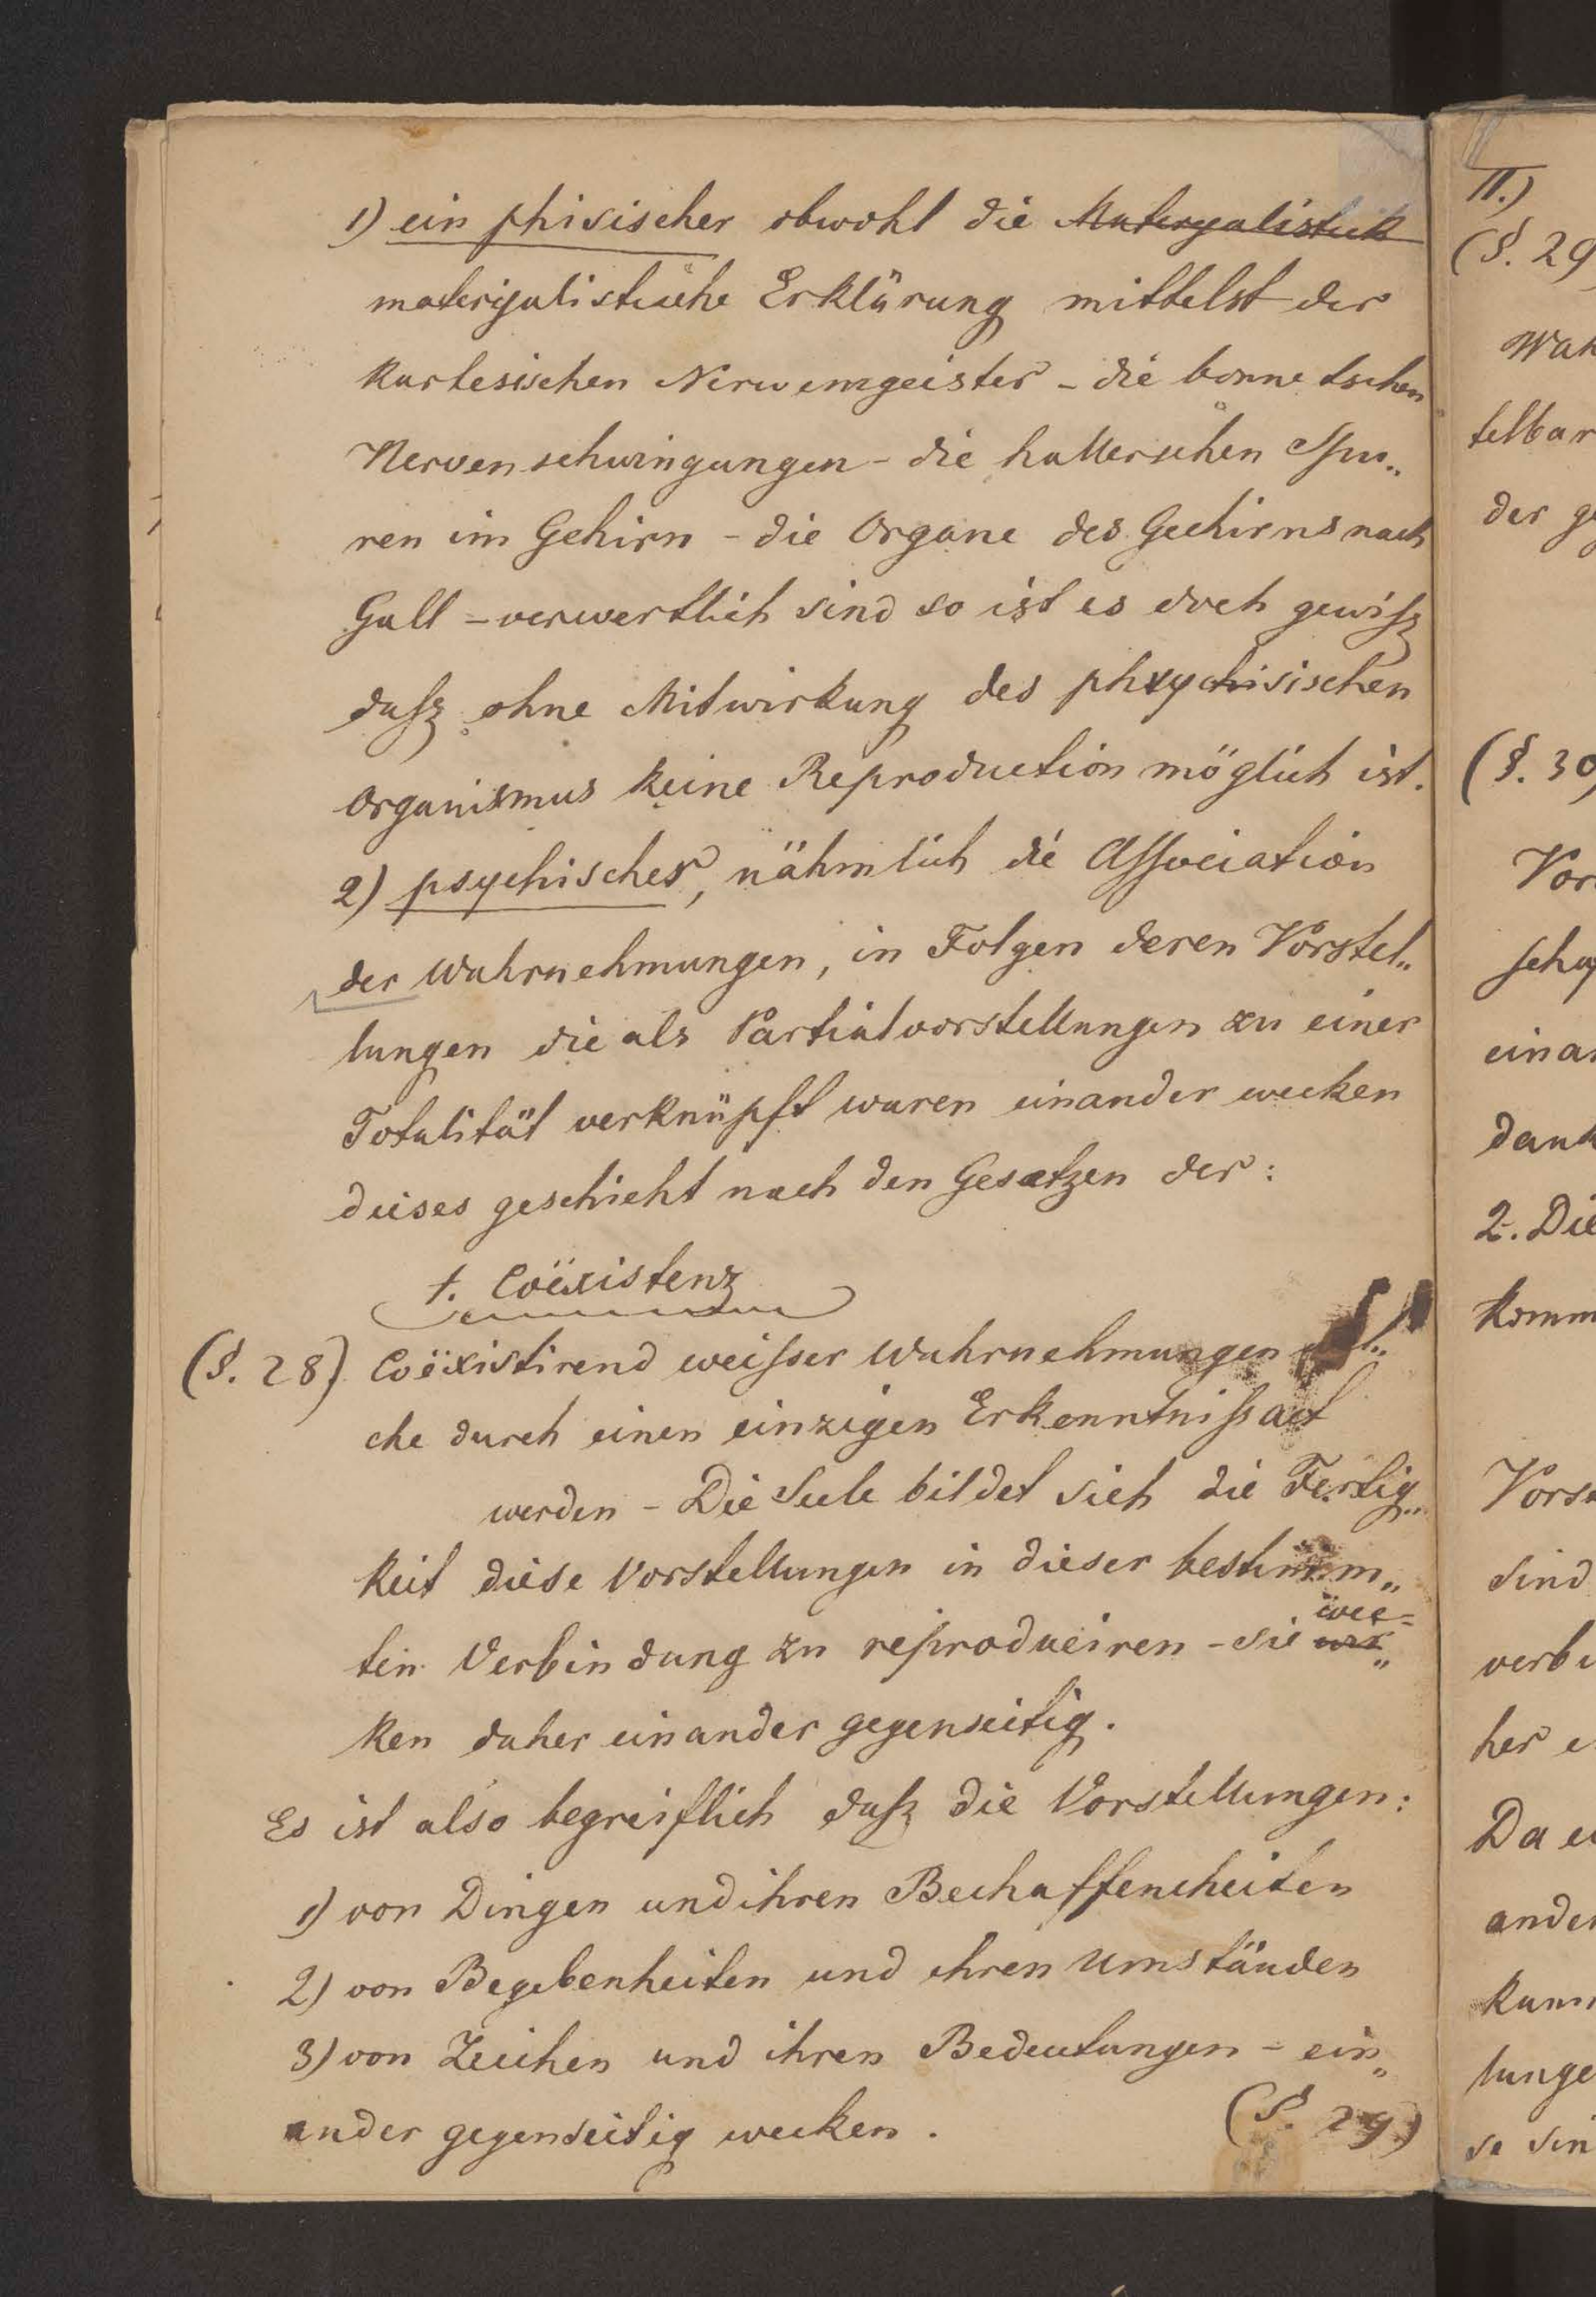 1) ein phisischer obwohl die Materyalistick
materiyalistische Erklärung mittelst der
kartesischen Nerwengeister - die bonnetschen
Nervenschwingungen - die hallerschen Spu„
ren im Gehirn - die Organe des Gechirns nach
Gall - verwertlich sind so ist es doch gewiß
daß ohne Mitwirkung des phxychisischen
Organismus keine Reproduction möglich ist.
2) psychischer, nähmlich die Association
der Wahrnehmungen, in Folgen deren Vorstel„
lungen die als Partialvorstellungen zu einer
Totalität verknüpft waren einander wecken
dieses geschieht nach den Gesetzen der:
†. Coëxistenz
(§. 28) Coëxistirend weisser Wahrnehmungen
che durch einen einzigen Erkenntnißact
werden - Die Seele bildet sich die Fertig„
keit diese Vorstellungen in dieser bestimm„
ten Verbindung zu reproduciren - sie wec=
ken daher einander gegenseitig.
Es ist also begreiflich daß die Vorstellungen:
1) von Dingen und ihren Bechaffencheiten
2) von Begebenheiten und ihren Umständen
3) von Zeichen und ihren Bedeutungen - ein„
ander gegenseitig wecken.
(§. 29)
II.)
(§. 29
Wah
telbar
der ge
(§. 30)
Vor
schaf
einan
dank
2. Die
komm
Vors
sind
verbi
her e
Da ei
ander
kann
lunge
se sin